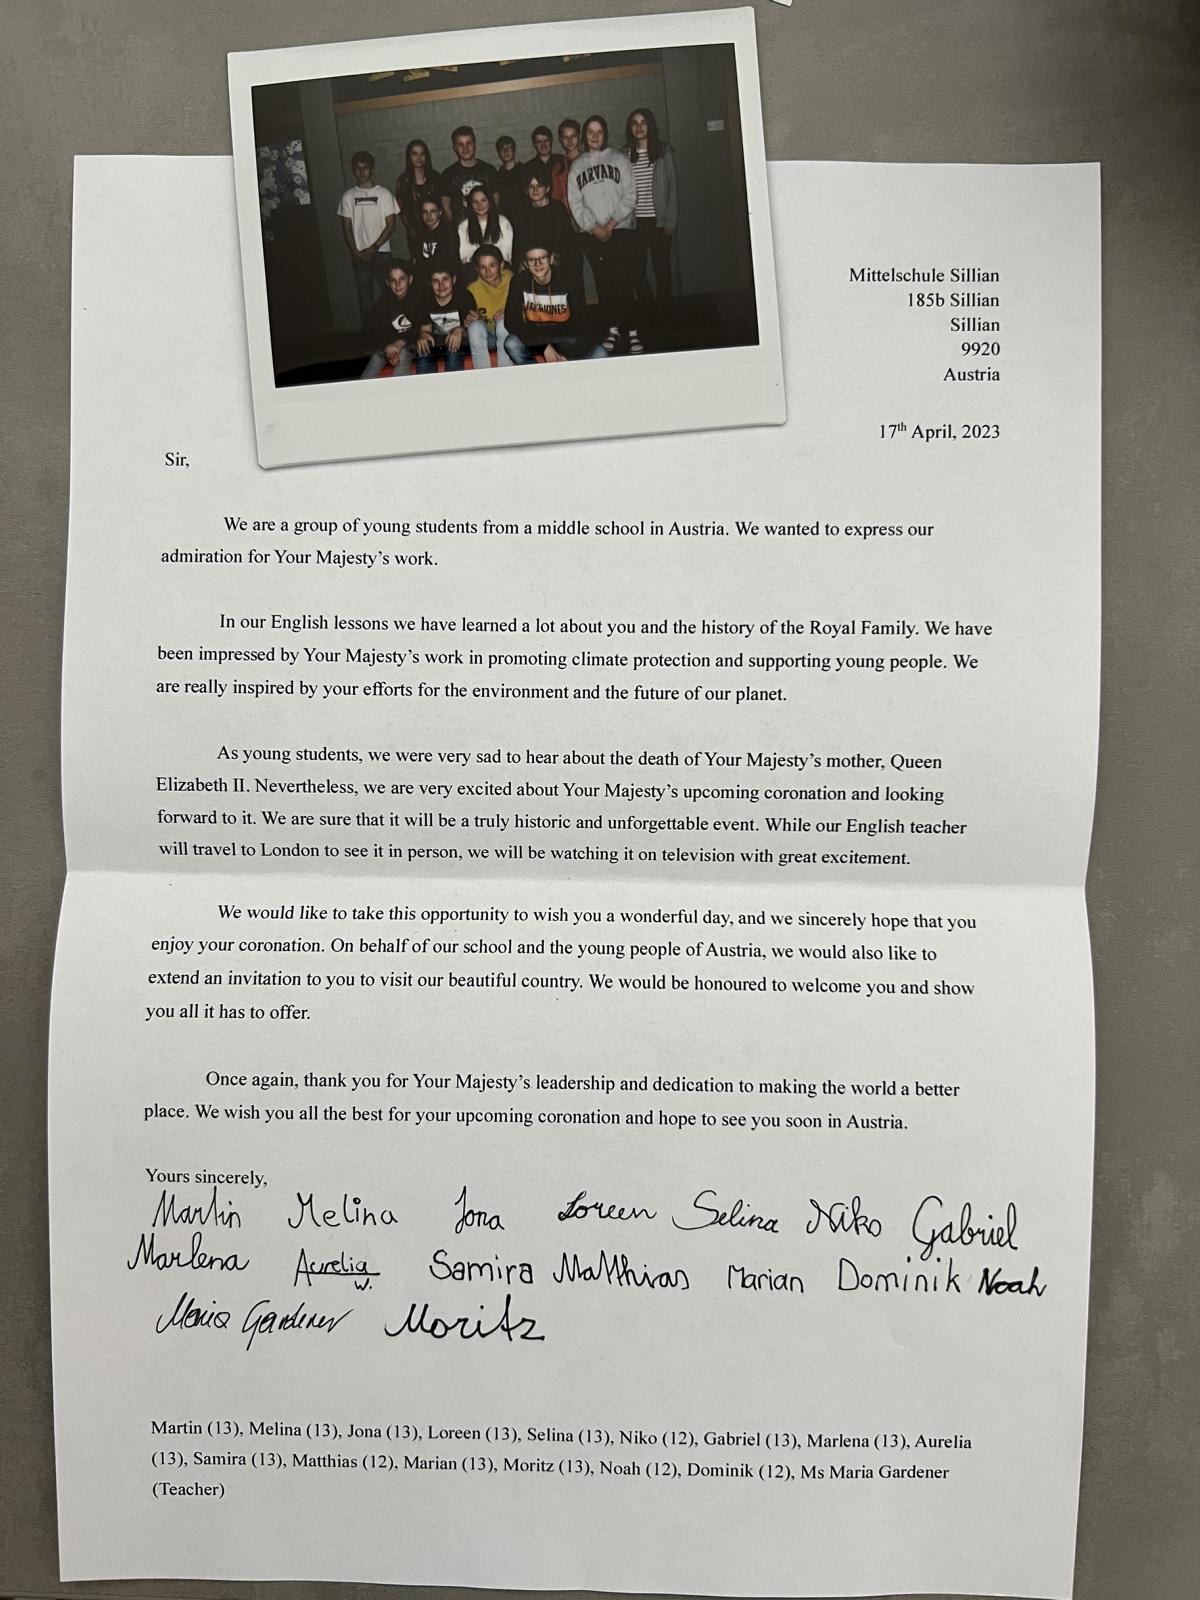 HARVARD
Mittelschule Sillian
185b Sillian
Sillian
9920
Austria
17th April, 2023
Sir,
We are a group of young students from a middle school in Austria. We wanted to express our
admiration for Your Majesty’s work.
In our English lessons we have learned a lot about you and the history of the Royal Family. We have
been impressed by Your Majesty’s work in promoting climate protection and supporting young people. We
are really inspired by your efforts for the environment and the future of our planet.
As young students, we were very sad to hear about the death of Your Majesty’s mother, Queen
Elizabeth II. Nevertheless, we are very excited about Your Majesty’s upcoming coronation and looking
forward to it. We are sure that it will be a truly historic and unforgettable event. While our English teacher
will travel to London to see it in person, we will be watching it on television with great excitement.
We would like to take this opportunity to wish you a wonderful day, and we sincerely hope that you
enjoy your coronation. On behalf of our school and the young people of Austria, we would also like to
extend an invitation to you to visit our beautiful country. We would be honoured to welcome you and show
you all it has to offer.
Once again, thank you for Your Majesty’s leadership and dedication to making the world a better
place. We wish you all the best for your upcoming coronation and hope to see you soon in Austria.
Yours sincerely,
Martin Melina Jona Loreen Selina Niko Gabriel
Marlena Aurelia W. Samira Matthias Marian Dominik Noah
Maria Gardener Moritz
Martin (13), Melina (13), Jona (13), Loreen (13), Selina (13), Niko (12), Gabriel (13), Marlena (13), Aurelia
(13), Samira (13), Matthias (12), Marian (13), Moritz (13), Noah (12), Dominik (12), Ms Maria Gardener
(Teacher)